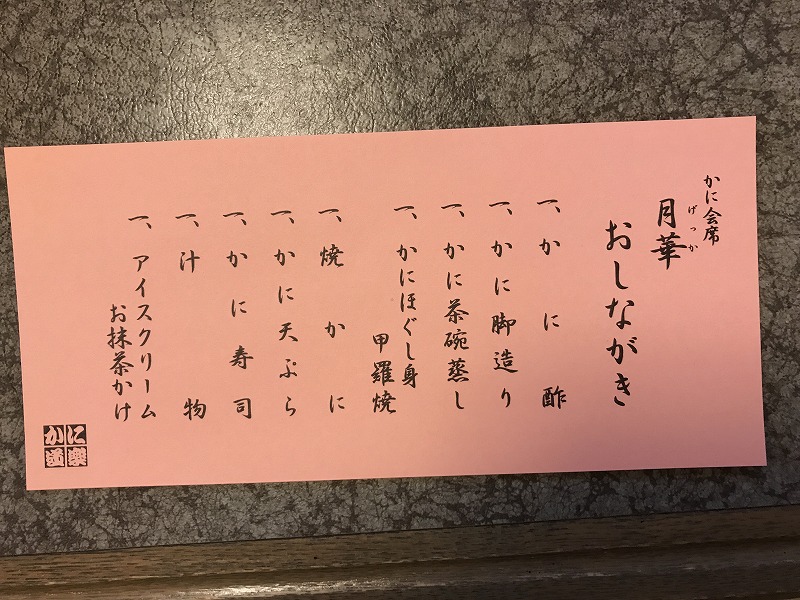 かに会席
月華
げっか
おしながき
一、かに酢
一、かに脚造り
一、かに茶碗蒸し
一、かにほぐし身
甲羅焼
一、焼かに
一、かに天ぷら
一、かに寿司
一、汁物
一、アイスクリーム
お抹茶かけ
かに道楽